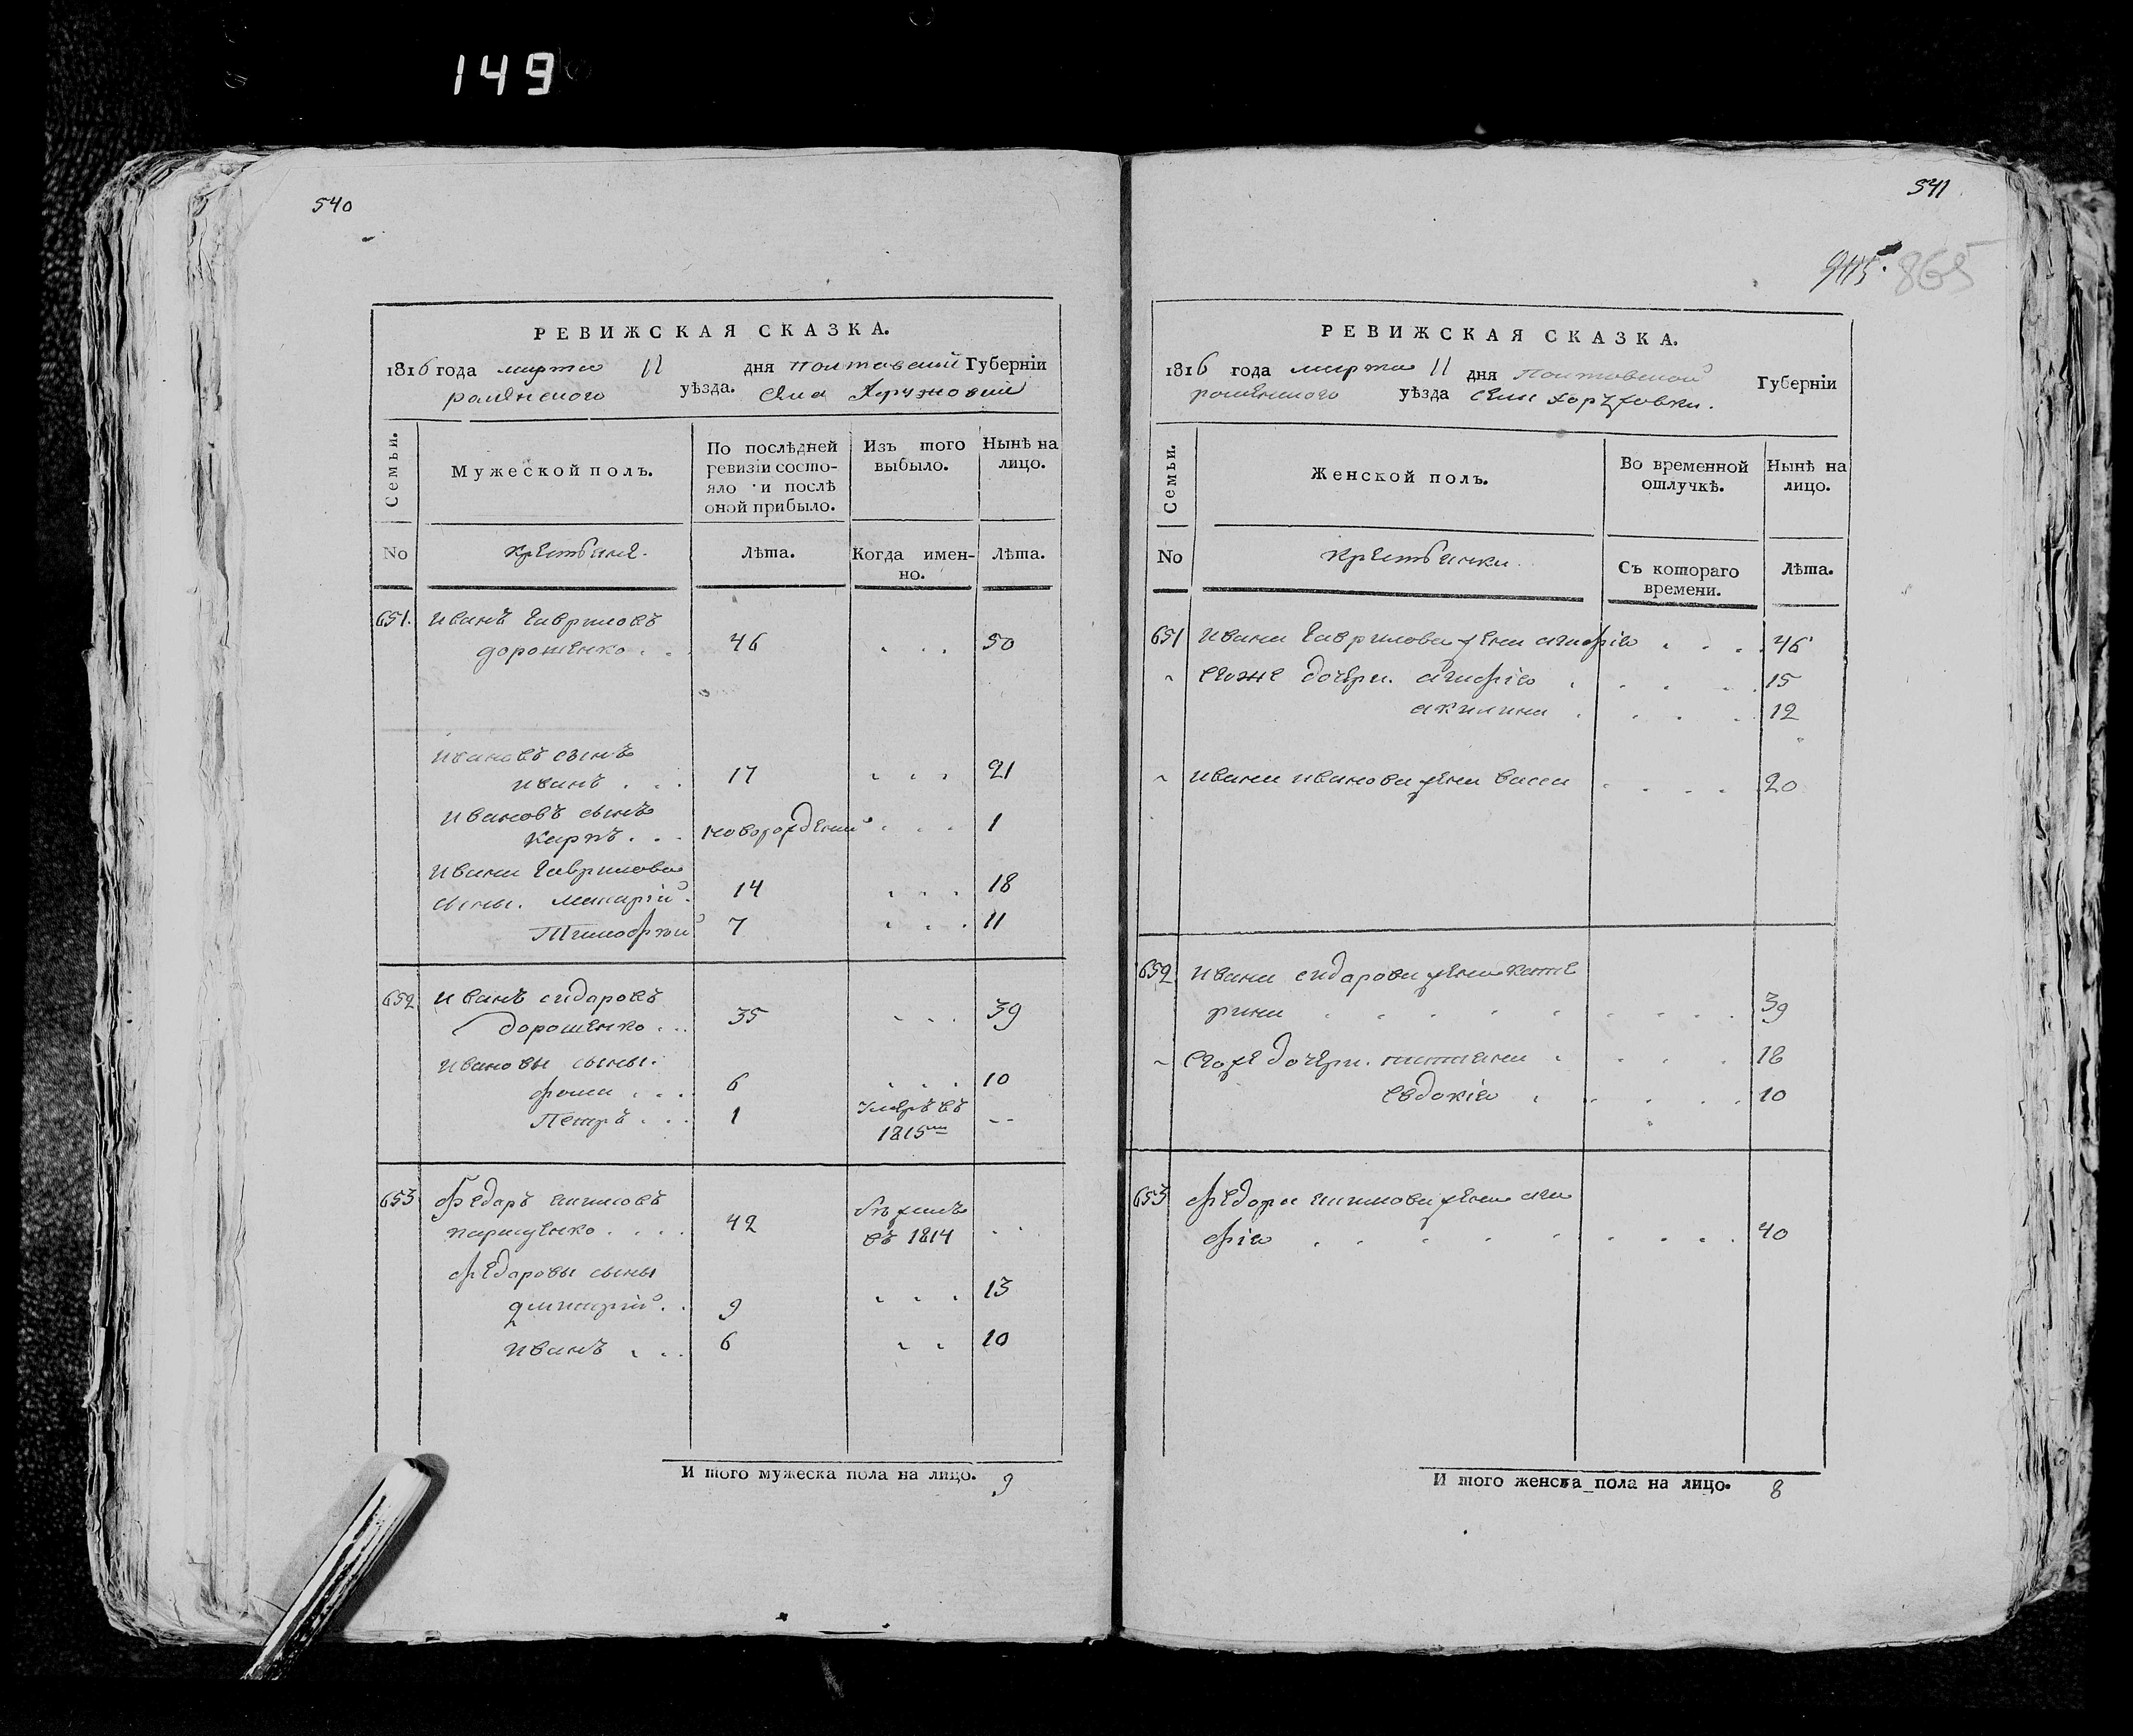 149
540
РЕВИЖСКАЯ СКАЗКА.
1816 года марта 11 дня Полтавской Губерніи
роменского уѣзда. села
Семьи.
Мужеской полъ.
По послѣдней ревизіи состо-
яло и послѣ
оной прибыло.
Изъ того
выбыло.
Нынѣ на
лицо.
No
крестьяне.
Лѣта.
Когда имен-
но.
Лѣта.
651. Иванъ Гавриловъ
дорошенко . . 46 . . . 50
Ивановъ сынъ
иванъ . . . 17 . . . 21
Ивановъ сынъ
Карпъ . . . новорожденый . . . 1
Ивана Гаврилова
сыны. макарій. 14 . . . 18
Тимофѣй 7 . . . 11
652 Иванъ сидаровъ
дорошенко . . . 35 . . . 39
Ивановы сыны.
фома . . . 6 . . . 10
Петръ . . . 1 умеръ въ
1815м --
653 Федаръ
42
въ 1814 . .
федаровы сыны
дмитрій . . 9 . . . 13
Иванъ . . . 6 . . 10
И того мужеска пола на лицо. 9
541
945. 865
РЕВИЖСКАЯ СКАЗКА.
1816 года марта 11 дня Полтавской Губерніи
роменского уѣзда села Хоружовки.
Семьи.
Женской полъ.
Во временной
отлучкѣ.
Нынѣ на
лицо.
No
крестьянки
Съ котораго
времени.
Лѣта.
651 Ивана Гаврилова жена агафія . . . . 46
" егоже дочери. агафія . . . . 15
акилина . . . . 12
" ивана иванова жена васса . . . . 20
652 Ивана сидарова жена кате
рина . . . . . . . . . 39
" егоже дочери. татиана . . . . 18
евдокія . . . . . 10
653 федора жена ага
фія . . . . . . . . . 40
И того женска пола на лицо. 8